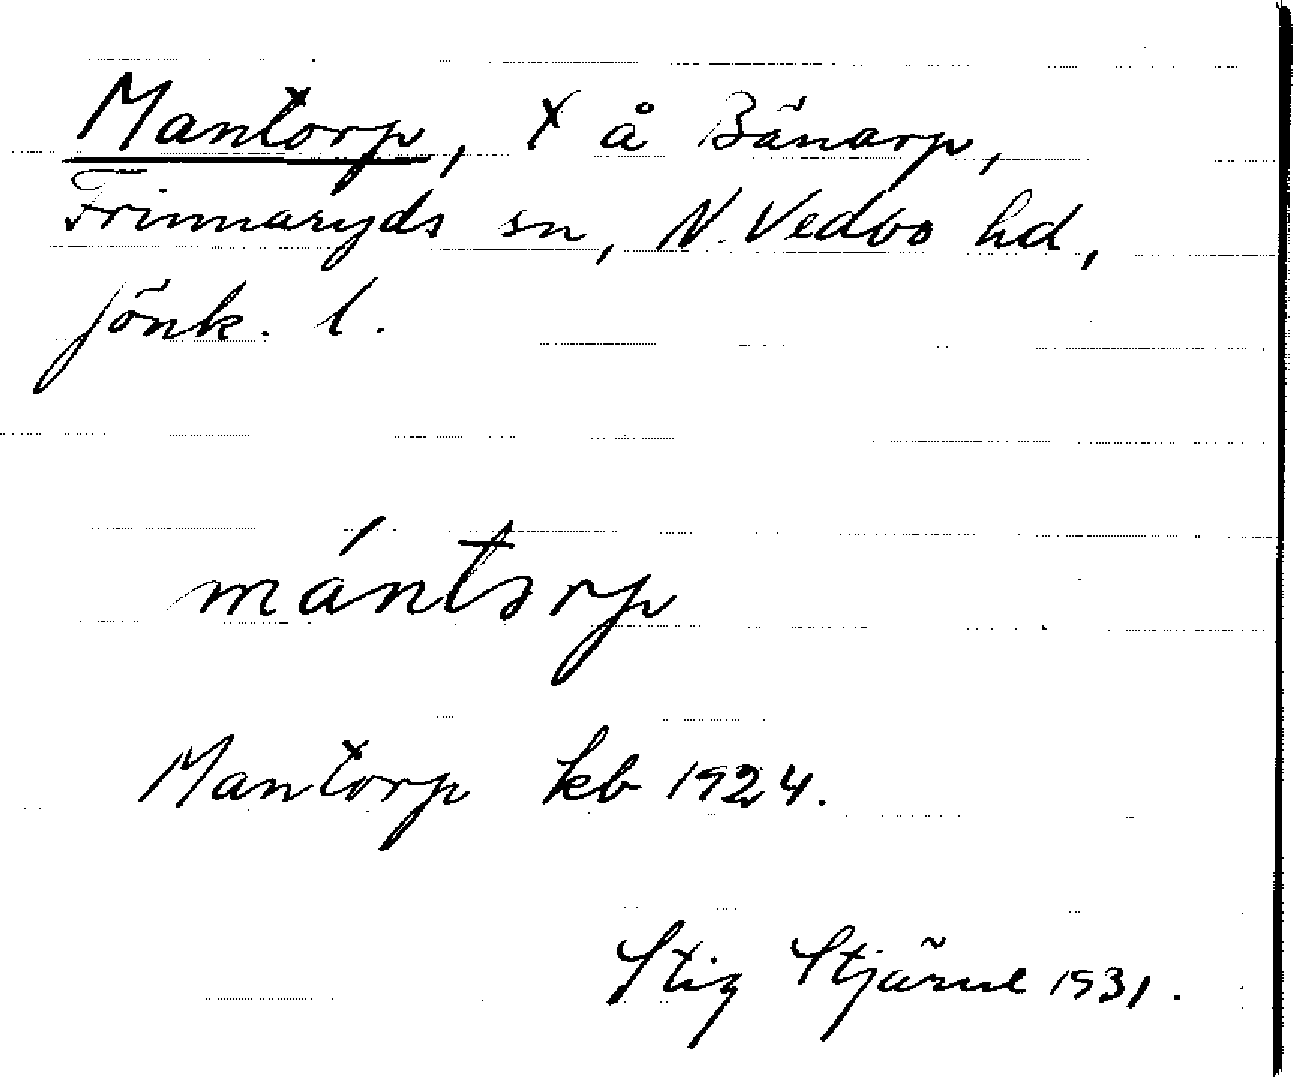 Mantorp, x å Bänarp,
Frinnaryds sn, N. Vedbo hd,
Jönk. l.
mántorp
Mantorp kb 1924.
Stig Stjärne 1931.